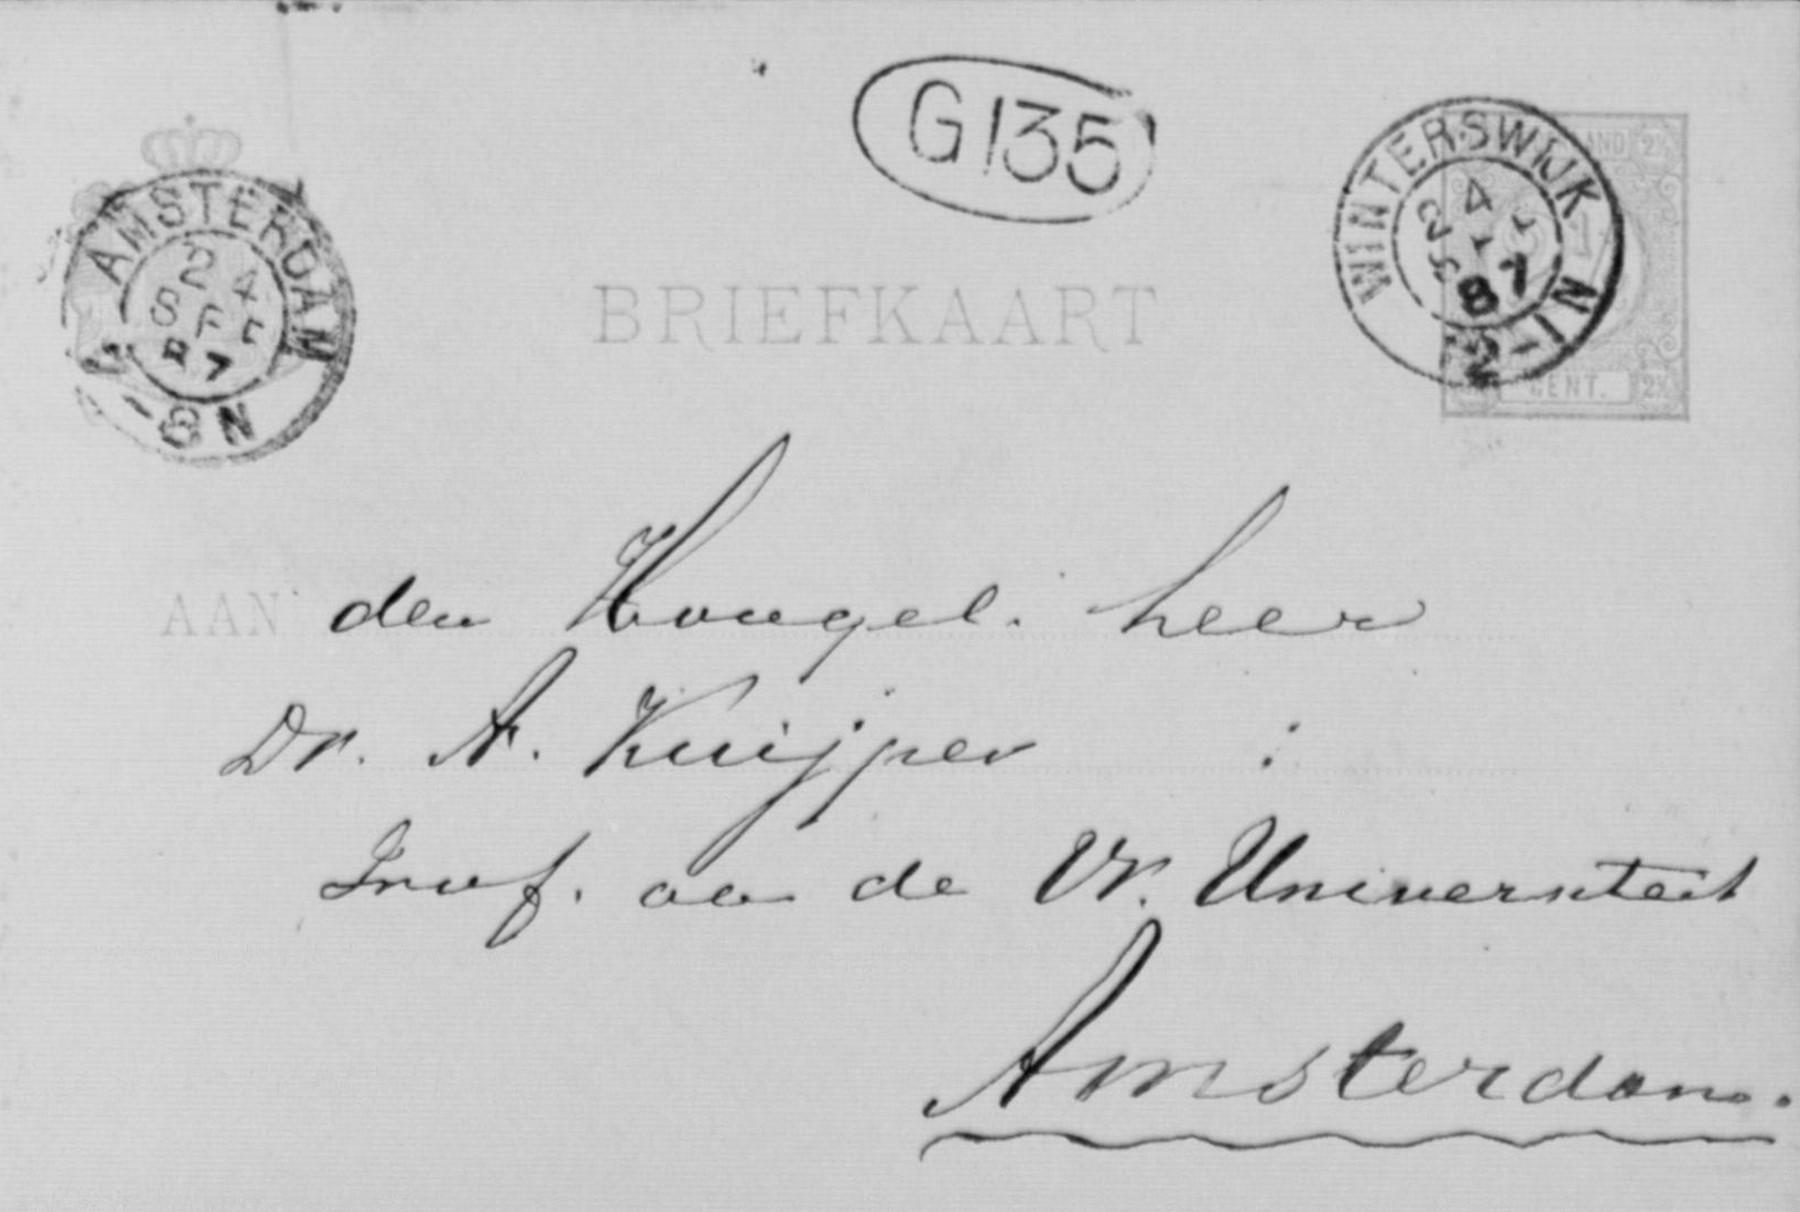 G135
AMSTERDAM
24
SEP
87
-8N
WINTERSWIJK
24
87
-1N
BRIEFKAART
CENT.
AAN den Hooggel. heer
Dr. A. Kuijper
Prof. aa de Vr. Universiteit
Amsterdam.